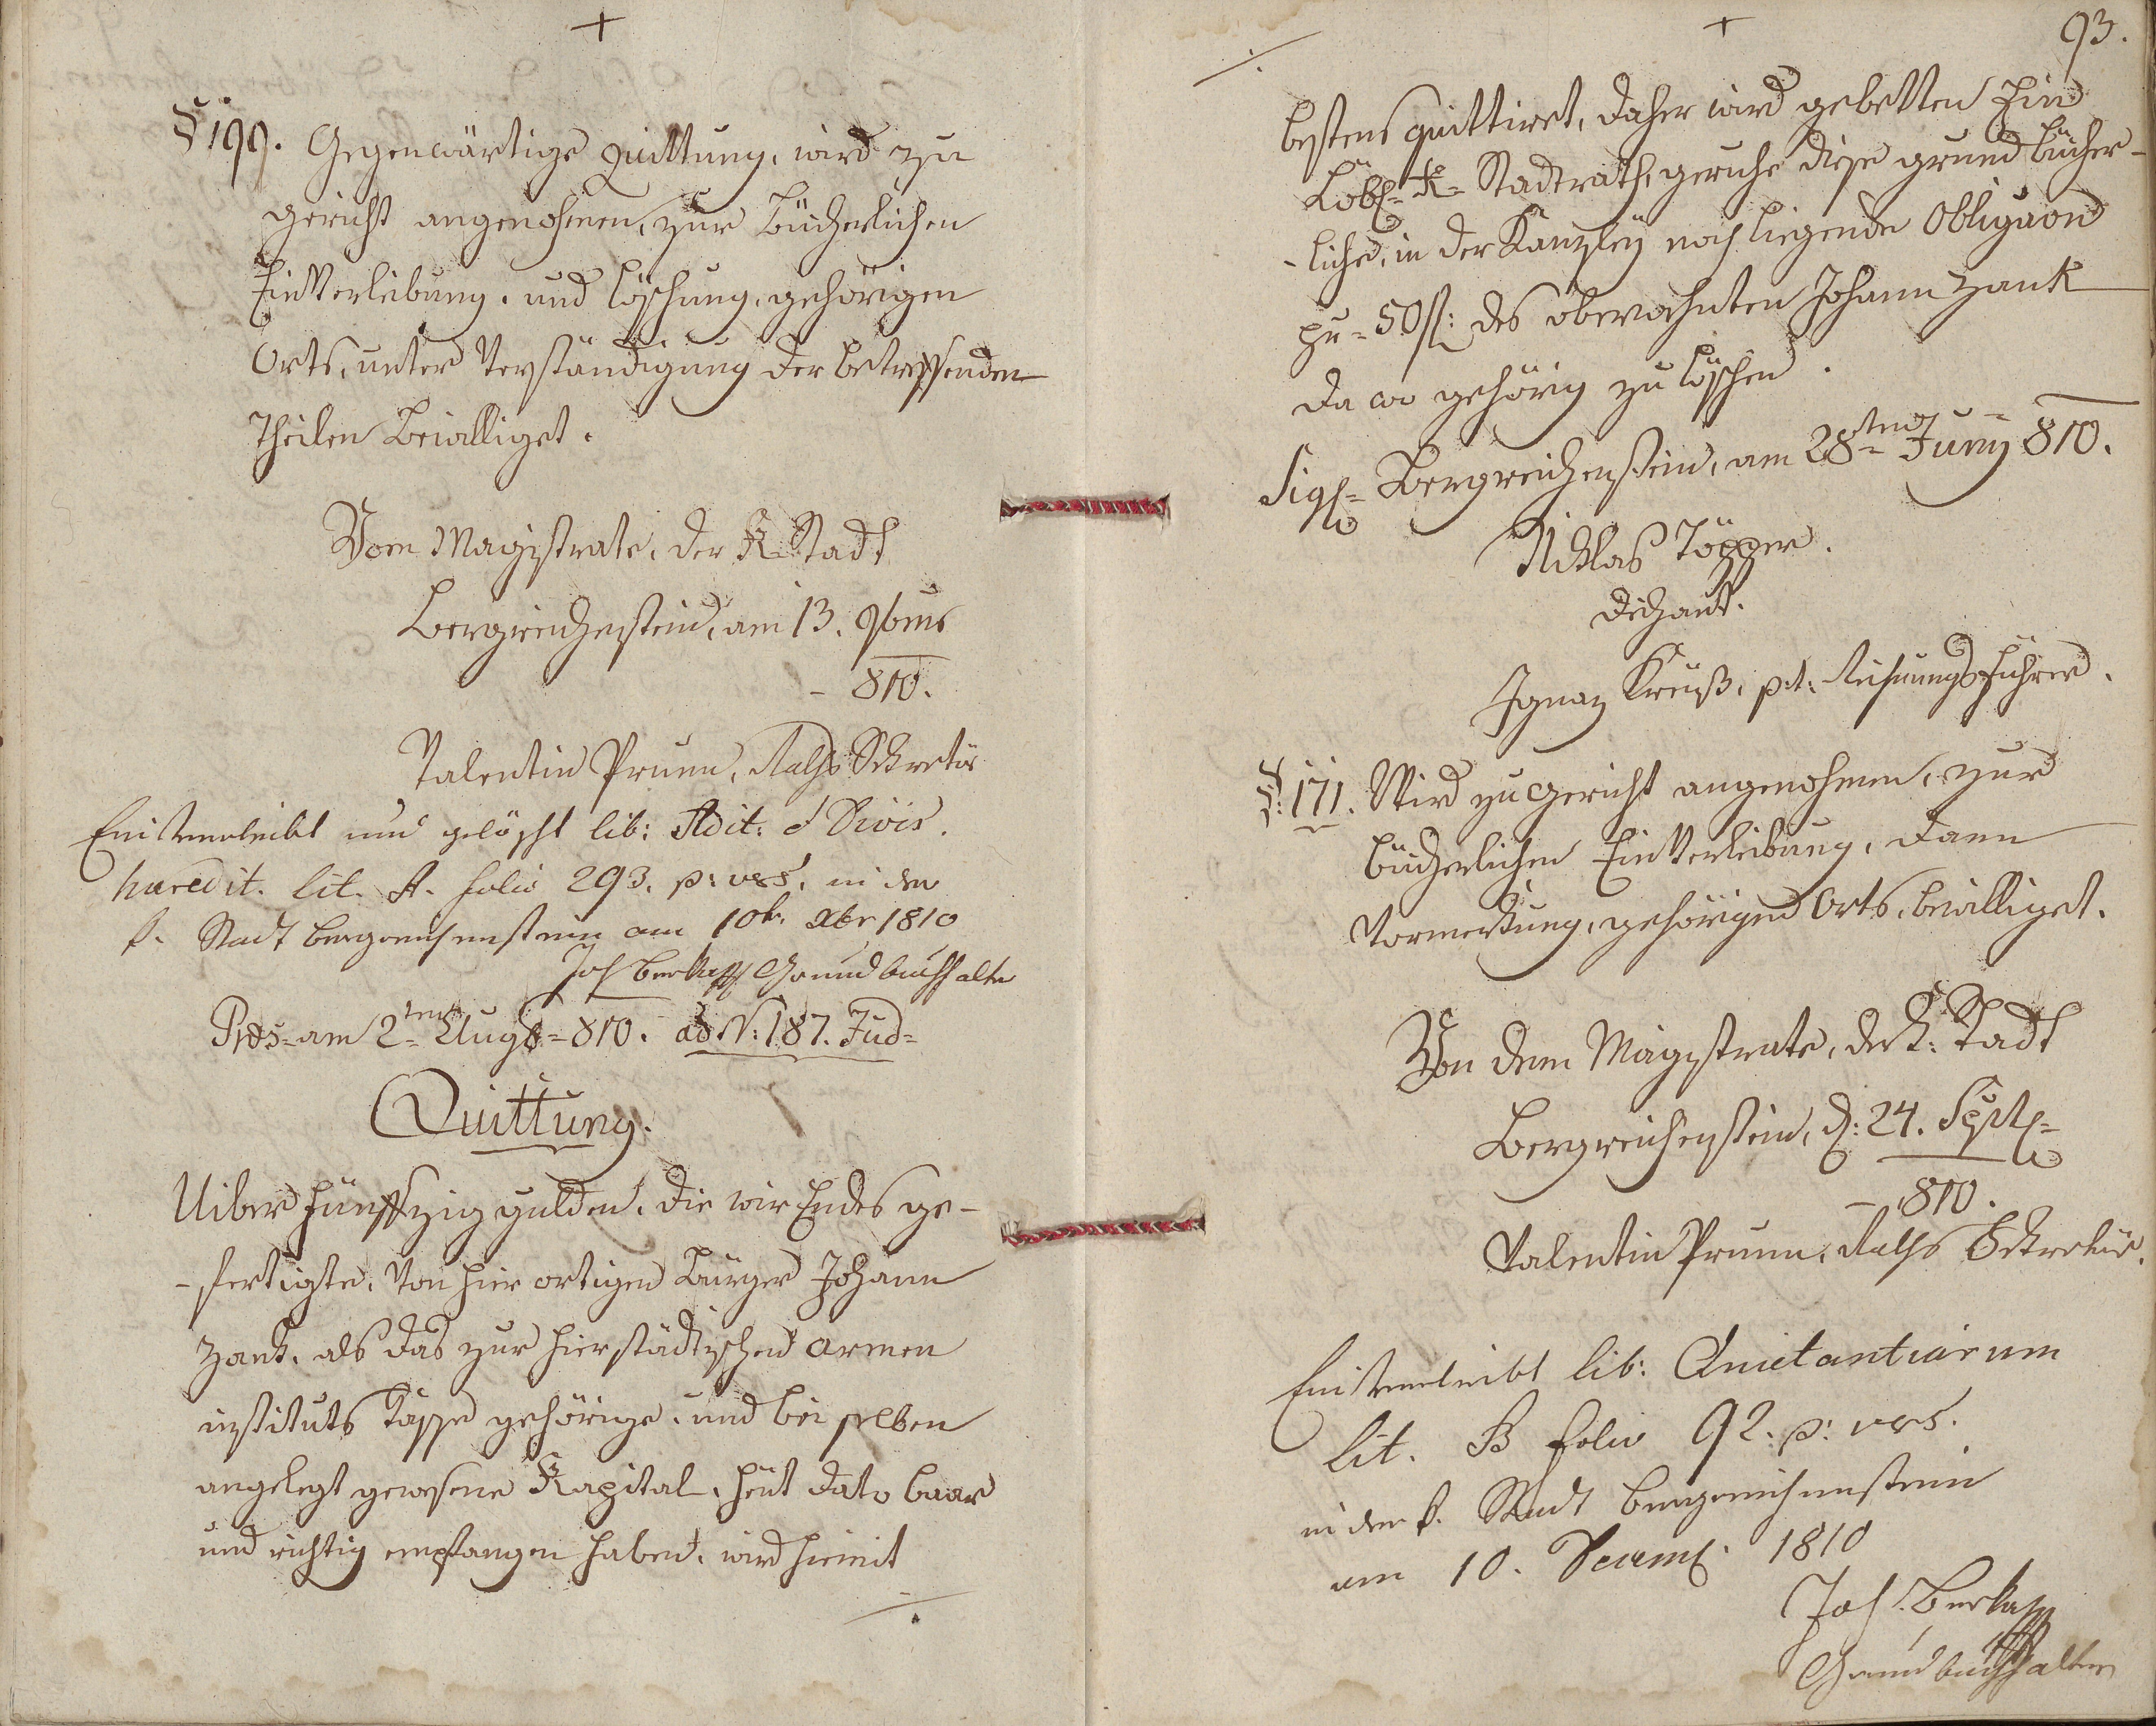 § 199. Gegenwärtige Quittung, wird zu
gericht angenohmen, zur Bücherlichen
EinVerleibung, und löschung, gehörigen
Orts, unter Verständigung der betreffenden
Theilen bewilliget.
Vom Magistrate, der K. Stadt
Bergreichenstein, am 13. 9bris
- 810.
Valentin Prunn, Raths Sekretär
Einverleibt und gelöscht lib: Adit: et Divis.
haeredit. lit. A. folio 293. p: vers. in der
k. Stadt Bergreichenstein am 10t. Xbr 1810
Joh Grundbuchhalter
Prɛs= am 2=ten Augt=810. ad N: 187. Jud=
Quittung.
Uiber fünffzig gulden, die wir Endes ge-
-fertigte, Von hier ortigen Bürger Johann
Zank, als das zur hierstädtischen armen
instituts Kasse gehörige, und bei selben
angelegt gewesene Kapital, heut dato baar
und richtig empfangen haben, wird hiemit
./.
93.
./.
bestens quittiret, daher wird gebetten Ein
Löbl= K= Stadtrath, geruhe diese grundbücher-
-liche, in der Kanzley noch liegende Obligaon
pr= 50 fl: des oberwohnten Johann Zank
da wo gehörig zu löschen.
Sigl= Bergreichenstein, am 28=ten Juny 810.
Niklas Töpper.
Dechant.
Ignaz Kreuß, p.t: Rechnungsführer.
§: 171. Wird zu gericht angenohmen, zur
bücherlichen EinVerleibung, dann
Vormerkung, gehörigen Orts, bewilliget.
Von dem Magistrate, der K: Stadt
Bergreichenstein, d: 24. Septl=
- 810.
Valentin Prunn, Raths Sekretär.
Einverleibt lib: Quietantiarum
lit. B folio 92. p: vers.
in der k. Stadt Bergreichenstein
am 10. Decembr. 1810
Joh.
Grundbuchhalter